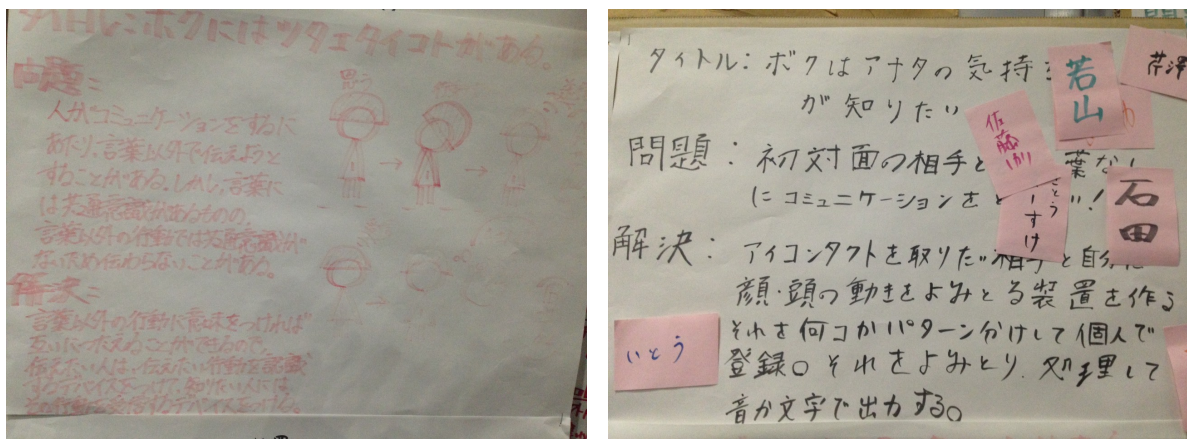 タイトル:ボクにはツタエタイコトがある。
問題:
人がコミュニケーションをするに
あたり、言葉以外で伝えようと
することがある。しかし、言葉に
は共通意識があるものの、
言葉以外の行動では共通意識が
ないため伝わらないことがある。
解決:
言葉以外の行動に意味をつければ
互いに伝えることができるので、
伝えたい人は、伝えたい行動を認識
するデバイスをつけて、知りたい人には
その行動を受信するデバイスをつける。
思う
タイトル:ボクはアナタの気持
が知りたい
問題:初対面の相手と 葉なし
にコミュニケーションをと !
解決:アイコンタクトを取りたい相手と自分に
顔・頭の動きをよみとる装置を作る
それを何コかパターン分けして個人で
登録。それをよみとり、処理して
音か文字で出力する。
若山
芹澤
佐藤
さとう
すけ
石田
いとう